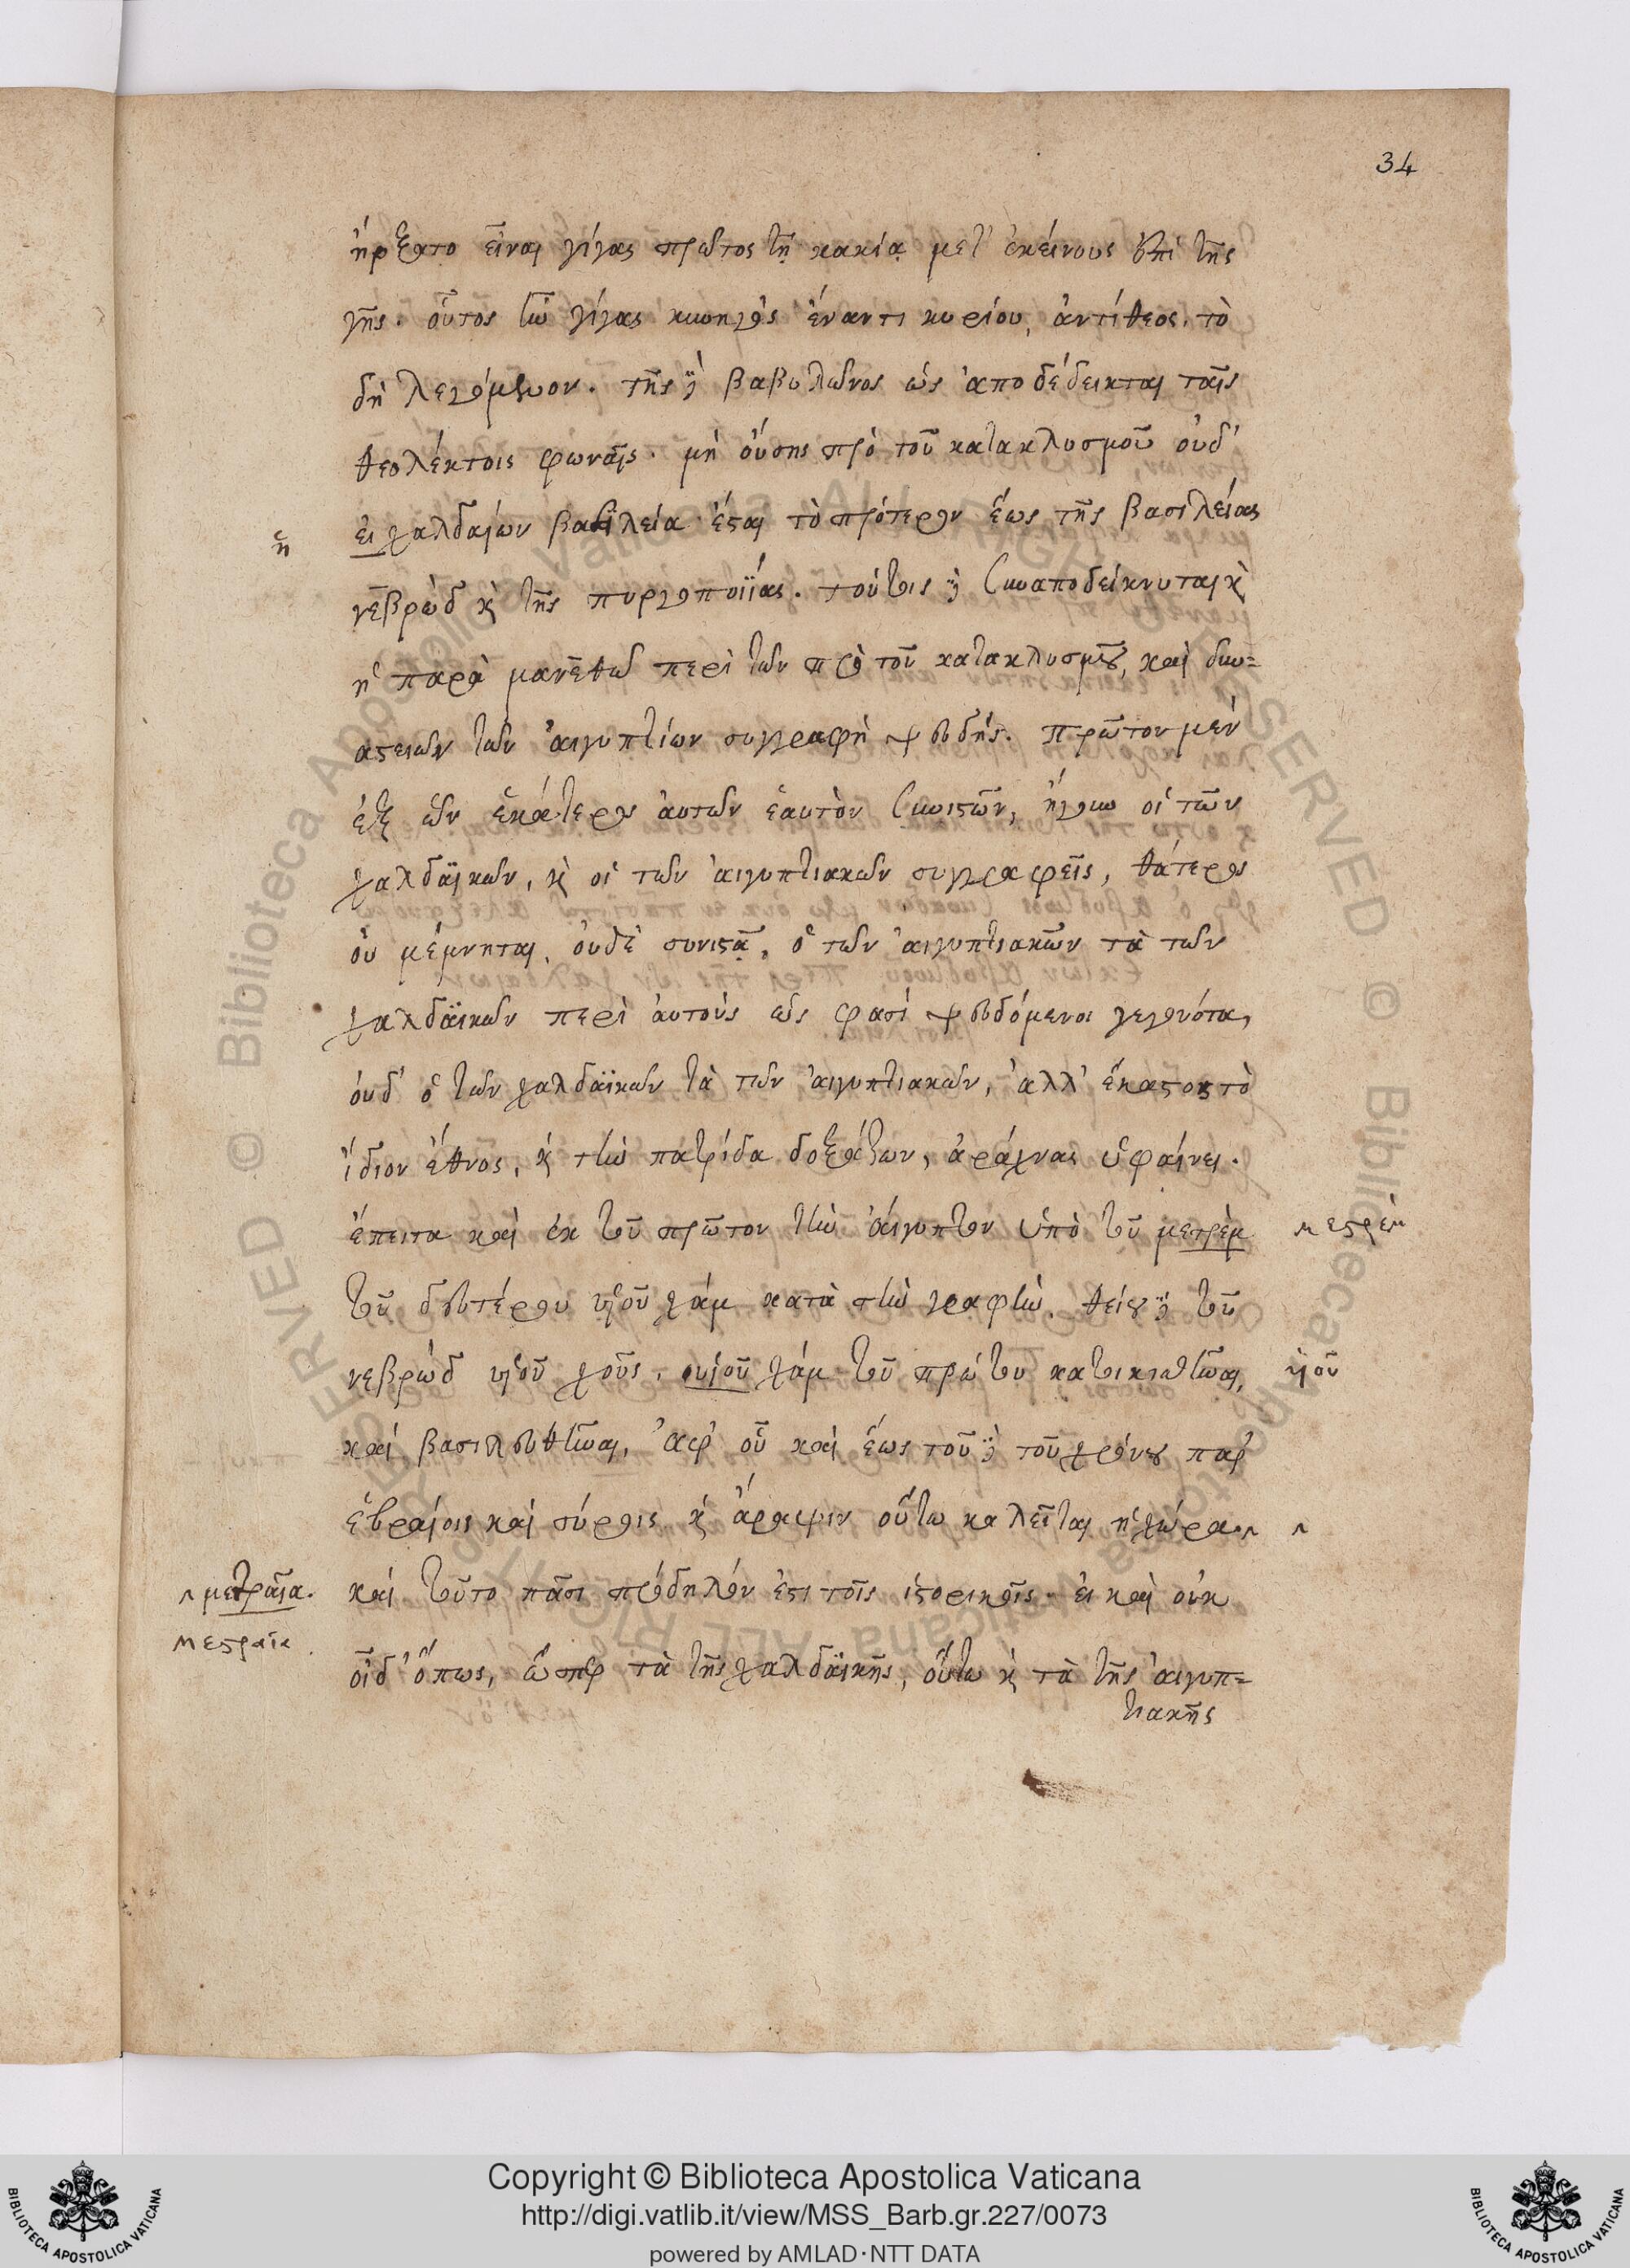 34
ἤρξατο εἶναι γίγας πρῶτος τῇ κακίᾳ μετ' ἐκείνους ἐπὶ τῆς
γῆς. οὗτος ἦν γίγας κυνηγὸς ἔναντι κυρίου, ἀντίθεος. τὸ
δὴ λεγόμενον. τῆς δὲ βαβυλῶνος ὡς ἀποδέδεικται ταῖς
θεολέκτοις φωναῖς. μὴ οὔσης πρὸ τοῦ κατακλυσμοῦ οὐδ'
ἢ
εἰ χαλδαίων βασιλεία ἔσται τὸ πρότερον ἕως τῆς βασιλείας
νεβρὼδ καὶ τῆς πυργοποιΐας. τούτοις δὲ συναποδείκνυται καὶ
ἡ παρὰ μανεθῶ περὶ τῶν πρὸ τοῦ κατακλυσμοῦ, καὶ δυν=
αστειῶν τῶν αἰγυπτίων συγγραφὴ ψευδής. πρῶτον μὲν
ἐξ ὧν ἑκάτερος αὐτῶν ἑαυτὸν συνιστῶν, ἤγουν οἱ τῶν
χαλδαϊκῶν, καὶ οἱ τῶν αἰγυπτιακῶν συγγραφεῖς, θάτερος
οὐ μέμνηται, οὐδὲ συνιστᾷ, ὁ τῶν αἰγυπτιακῶν τὰ τῶν
χαλδαϊκῶν περὶ αὐτοὺς ὥς φασι ψευδόμενοι γεγονότα,
οὐδ' ὁ τῶν χαλδαϊκῶν τὰ τῶν αἰγυπτιακῶν, ἀλλ' ἕκαστος τὸ
ἴδιον ἔθνος, καὶ τὴν πατρίδα δοξάζων, ἀράχνας ὑφαίνει.
ἔπειτα καὶ ἐκ τοῦ πρῶτον τὴν αἴγυπτον ὑπὸ τοῦ μετρὲμ
μεστρέμ
τοῦ δευτέρου υἱοῦ χάμ κατὰ τὴν γραφὴν. θείου δὲ τοῦ
νεβρὼδ υἱοῦ χοῦς, υἱοῦ χάμ τοῦ πρώτου κατοικισθῆναι,
υἱοῦ
καὶ βασιλευθῆναι, ἀφ' οὗ καὶ ἕως τοῦ δὲ τοῦ χρόνου παρ'
ἑβραίοις καὶ σύροις καὶ ἄραψιν οὕτω καλεῖται ἡ χώρα. ^ ^
^ μετραῖα.
μεστραία
καὶ τοῦτο πᾶσι πρόδηλόν ἐστι τοῖς ἱστορικοῖς. εἰ καὶ οὐκ
οἶδ' ὅπως, ὥσπερ τὰ τῆς χαλδαϊκῆς, οὕτω καὶ τὰ τῆς αἰγυπ=
τιακῆς
Copyright © Biblioteca Apostolica Vaticana
http://digi.vatlib.it/view/MSS_Barb.gr.227/0073
powered by AMLAD·NTT DATA
BIBLIOTECA APOSTOLICA VATICANA
BIBLIOTECA APOSTOLICA VATICANA
© Biblioteca Apostolica Vaticana ALL RIGHTS RESERVED
© Biblioteca Apostolica Vaticana ALL RIGHTS RESERVED